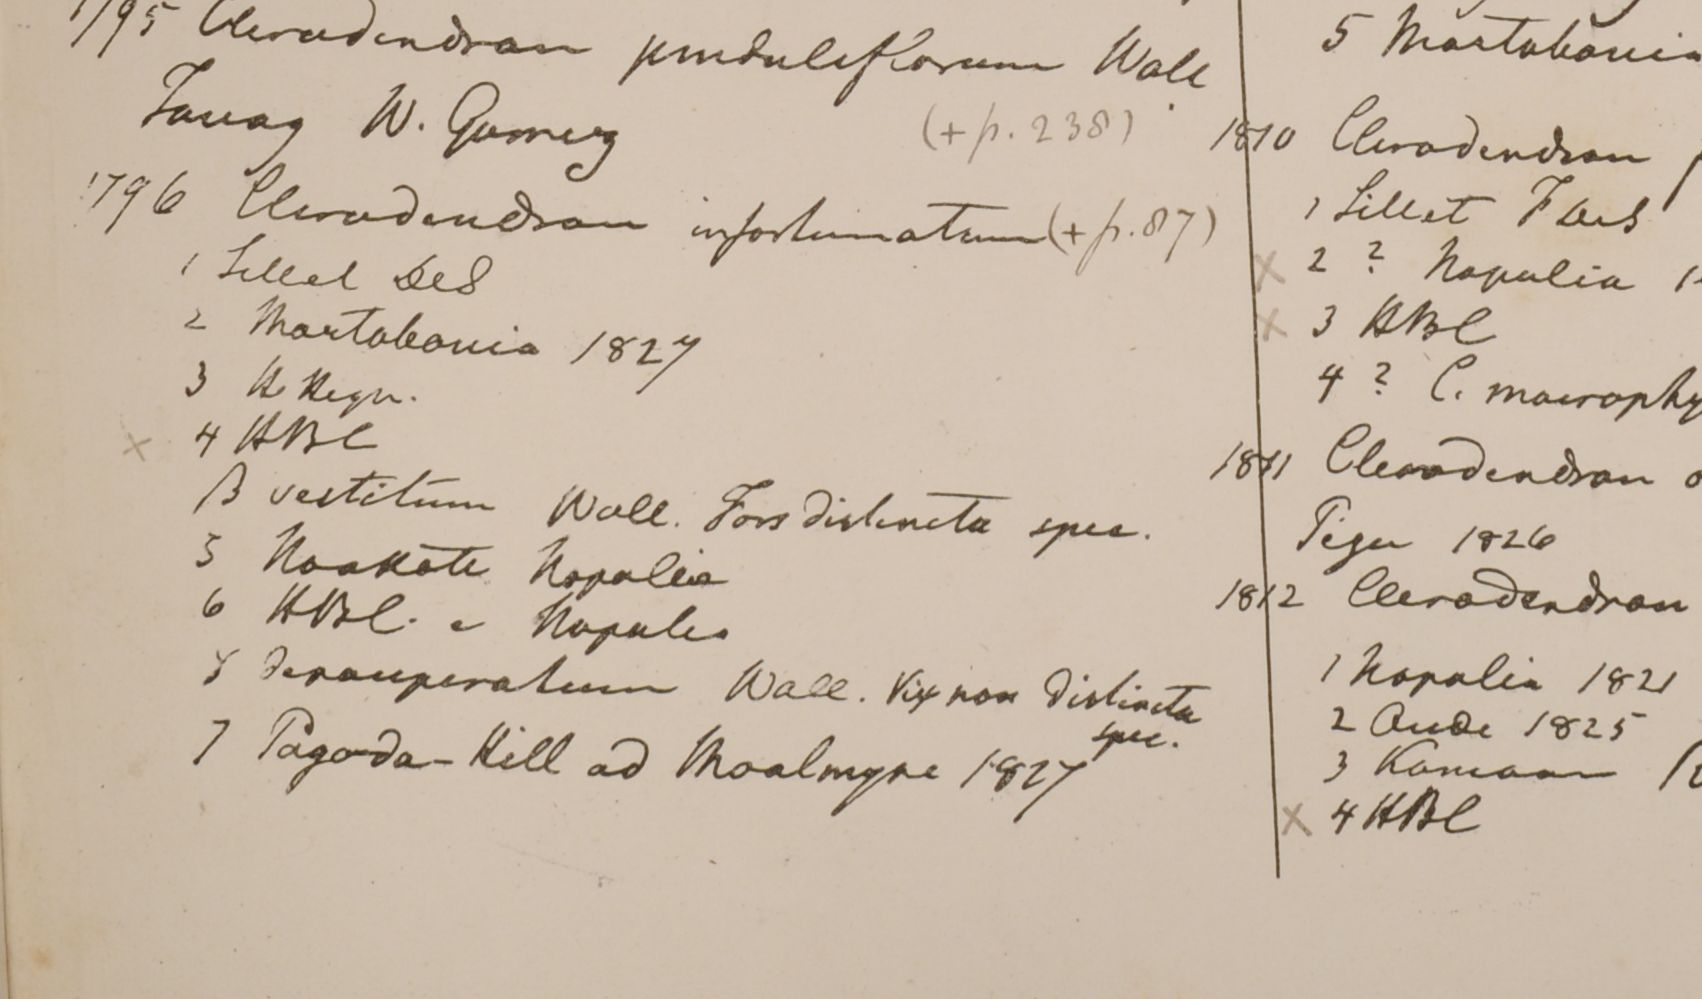 1795 Clerodendron penduliflorum Wall
Tavoy W. Gomez (+ p. 238)
1796 Clerodendron infortunatum (+ p. 87)
1 Sillet DeS
2 Martabania 1827
3 H Hegn.
4 HBC
β vestitum Wall. Fors distincta spec.
5 Noakote Napalia
6 HBC. e Napalia
γ depauperatum Wall. Vix non distincta
spec.
7 Pagoda-Hill ad Moalmyne 1827
5 Martabania
1810 Clerodendron
1 Sillet F deS
x 2 ? Napalia
x 3 HBC
4 ? C. macrophy
1811 Clerodendron
Pegu 1826
1812 Clerodendron
1 Napalia 1821
2 Oude 1825
3 Kamaon
x 4 HBC